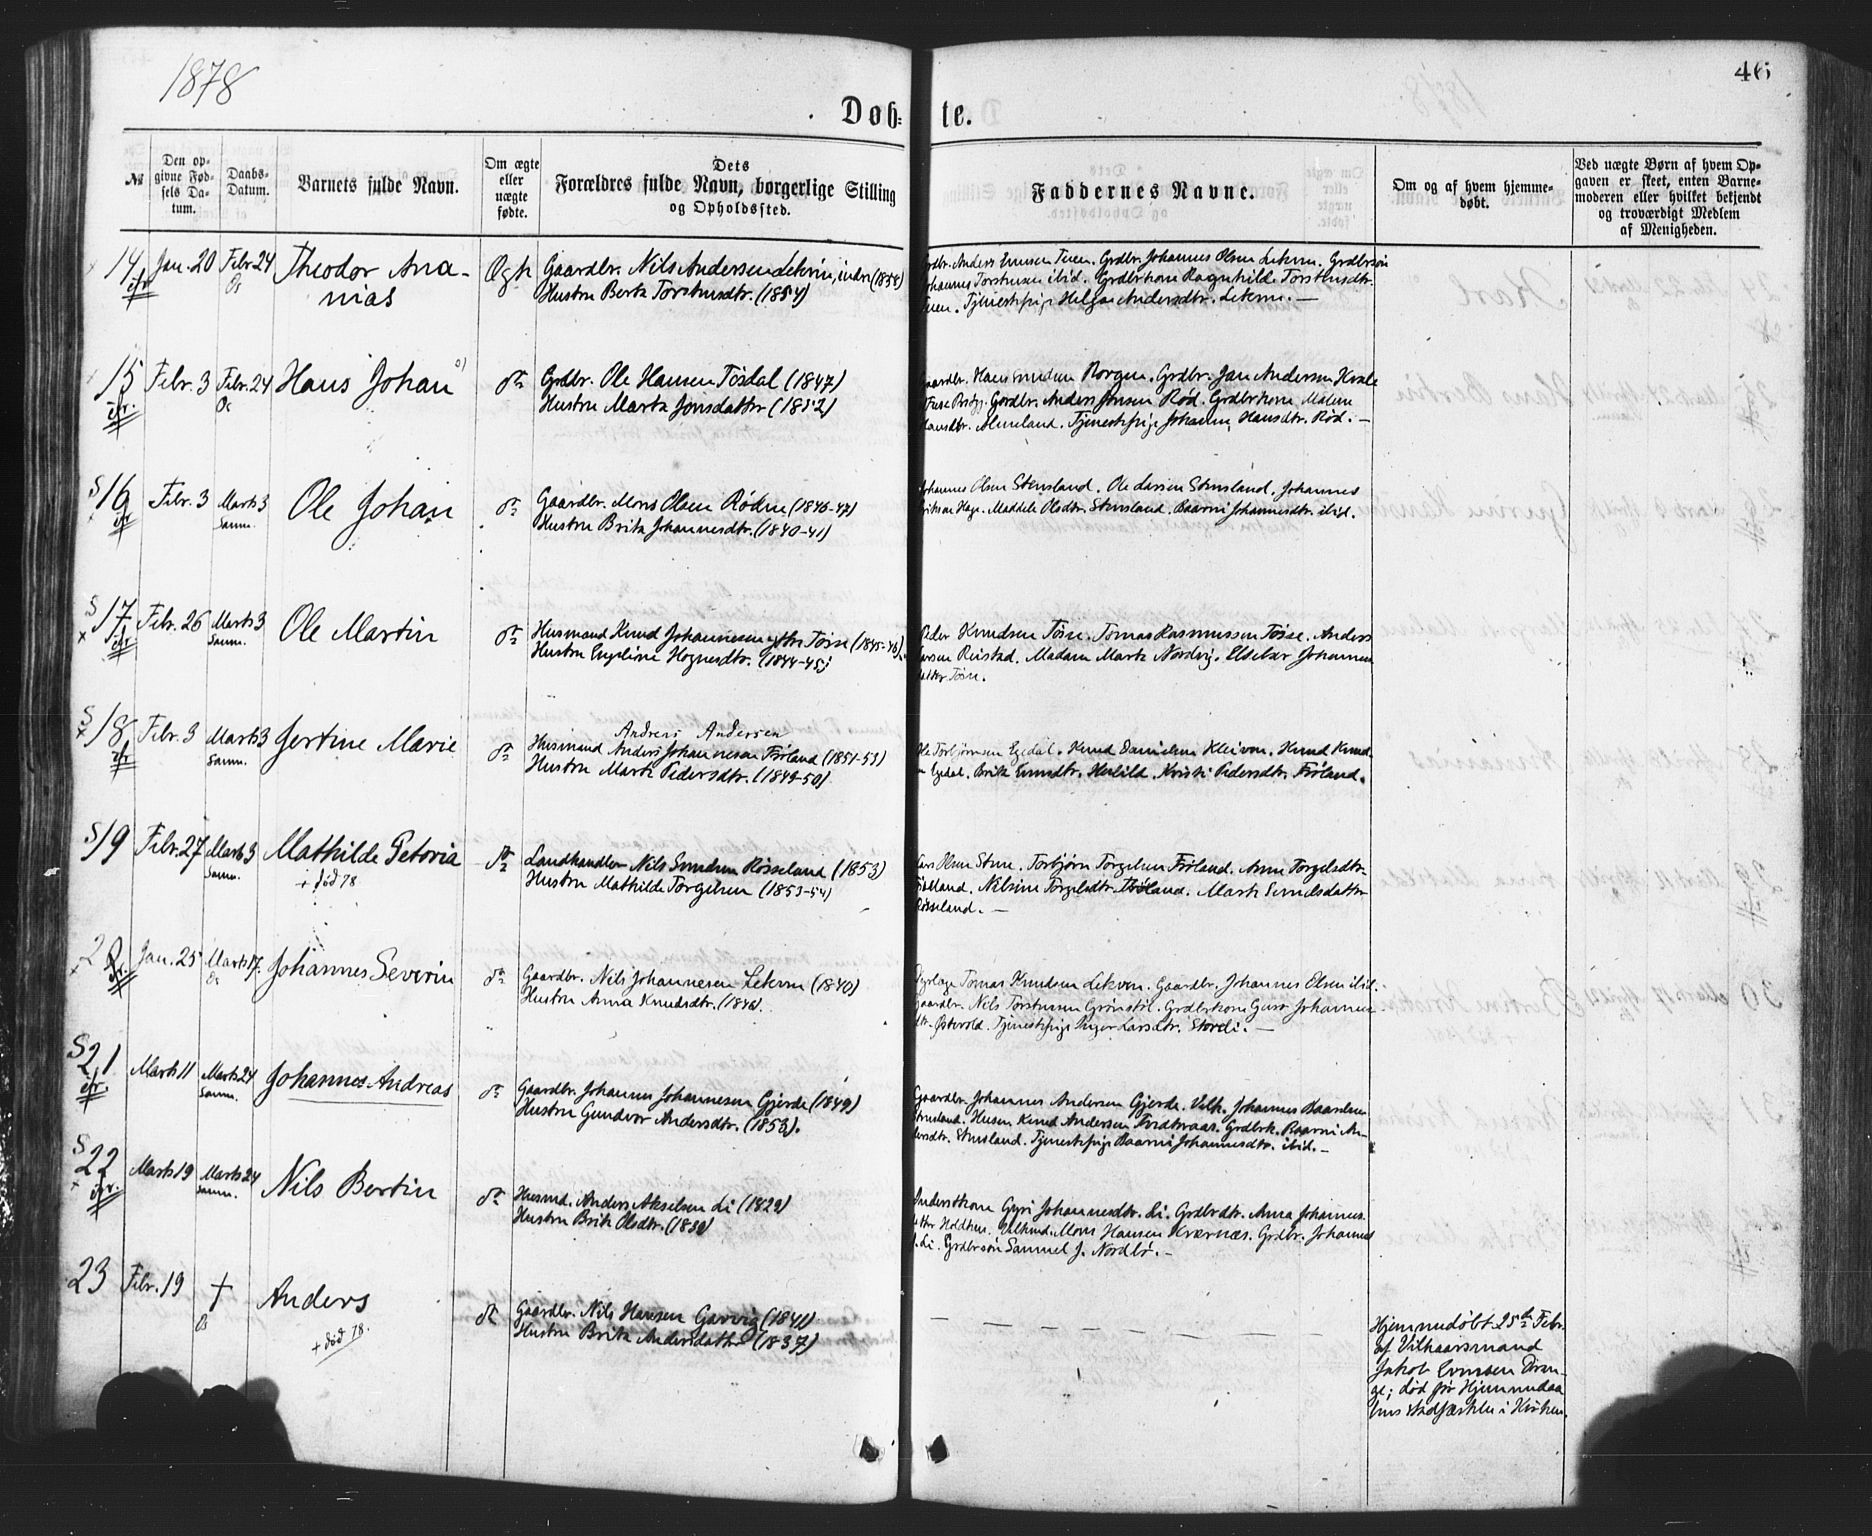 1878
46
Døbte.
№
Den opgivne Fødsels Datum.
Daabs-Datum.
Barnets fulde Navn.
Om ægte eller uægte fødte.
Dets Forældres fulde Navn, borgerlige Stilling og Opholdssted.
Faddernes Navne.
Om og af hvem hjemmedøbt.
Ved uægte Børn af hvem Opgaven er skeet, enten Barnemoderen eller hvilket bekjendt og troværdigt Medlem af Menigheden.
14 Jan. 20 Febr. 24 Theodor Ananias Ægte
Os
Gaardbr. Nils Andersen Lekvin, indre
Hustru Berta Torstensdtr. (1854)
Johannes Torstensen ibid. Grdbrkone Ragnhild Torstensdtr.
Teien. Tjenestepige Helga Andersdtr. Lekven. —
15 Febr. 3 Febr. 24 Hans Johan do
Os
Grdbr. Ole Hansen Tøsdal (1847)
Hustru Marta Jonsdatter (1852)
Gaardbr. Hans Røttingen
Grdbr. Anders Jonsen Rød. Grdbrkone Malene
Hansdtr. Tjenestepige Johanne Hansdtr. Rød. —
16 Febr. 3 Marts 3 Ole Johan do
Samn.
Gaardbr. Mons Olsen Røthe (1846-47)
Hustru Brita Johannesdtr. (1840-41)
Johannes Olsen Stensland. Ole Larsen Stensland. Johannes
Eriksen Haga. Maddele Olsdtr. Stensland. Baarni Johannesdtr. ibid.
17 Febr. 26 Marts 3 Ole Martin do
Samn.
Husmand Knud Johannesen ytre Tøsse (1845-46).
Hustru Engeline Hognesdtr. (1844-45)
Peder Knudsen Tøsse. Tomas Rasmussen Tøsse. Anders
Larsen Reistad. Madam Marta Nordvig. Elsebær Johannes
datter Tøsse.
18 Febr. 3 Marts 3 Gertine Marie do
Samn.
Andreas Andersen
Husmand Anders Johannesen Frøland (1851-53)
Hustru Marta Pedersdtr. (1849-50)
Ole Torbjørnsen Egedal. Knud Danielsen Kleiven. Knud Knud
n Egedal. Brita Hetlid. Kristi Pedersdtr. Frøland.
19 Febr. 27 Marts 3 Mathilde Petovia do
Samn.
+ død 78
Landhandler Nils Røsseland (1853)
Hustru Mathilde Torgilsen (1853-54)
Lars Olsen Stue. Torbjørn Torgilsen Frøland. Anna Torgilsdtr.
Frøland. Nilsine Torgilsdtr. Frøland. Marta
Røsseland. —
20 Jan. 25 Marts 17. Johannes Severin do
Os
Gaardbr. Nils Johannesen Lekven (1840)
Hustru Anna Knudsdtr. (1846).
Tomas Knudsen Lekven. Gaardbr. Johannes Olsen ibid.
Gaardbr. Nils Torstensen Grønstøl. Grdbrkone Guro Johannes
dtr. Østevold. Tjenestepige Inger Larsdtr. Storeli. —
21 Marts 11 Marts 24 Johannes Andreas do
Samn.
Gaardbr. Johannes Johannesen Gjerde (1849)
Hustru Gundvor Andersdtr. (1853).
Gaardbr. Johannes Andersen Gjerde. Vilk. Johannes Baardsen
Stensland. Husm. Knud Andersen Tveiteraas. Grdbrk. Baarni An-
dersdtr. Stensland. Tjenestepige Baarni Johannesdtr. ibid. —
22 Marts 19 Marts 24 Nils Bertin do
Samn.
Husmd. Anders Akselsen Li (1829)
Hustru Brita Olsdtr. (1830)
Anderskone Gyri Johannesdtr. Li. Grdbrdtr. Anna Johannes.
datter Holdhus. Mons Hansen Kværnæs. Grdbr. Johannes
J. Li. Grdbrsøn Samuel J. Nordbø. —
23 Febr. 19 + Anders do
Os
+ død 78.
Gaardbr. Nils Hansen Gjørvig (1841)
Hustru Brita Andersdatter (1837)
Hjemmedøbt 25de Febr.
af Vilkaarsmand
Jakob Drange;
død før Hjemmedaabens
Stadfæstelse i Kirken.